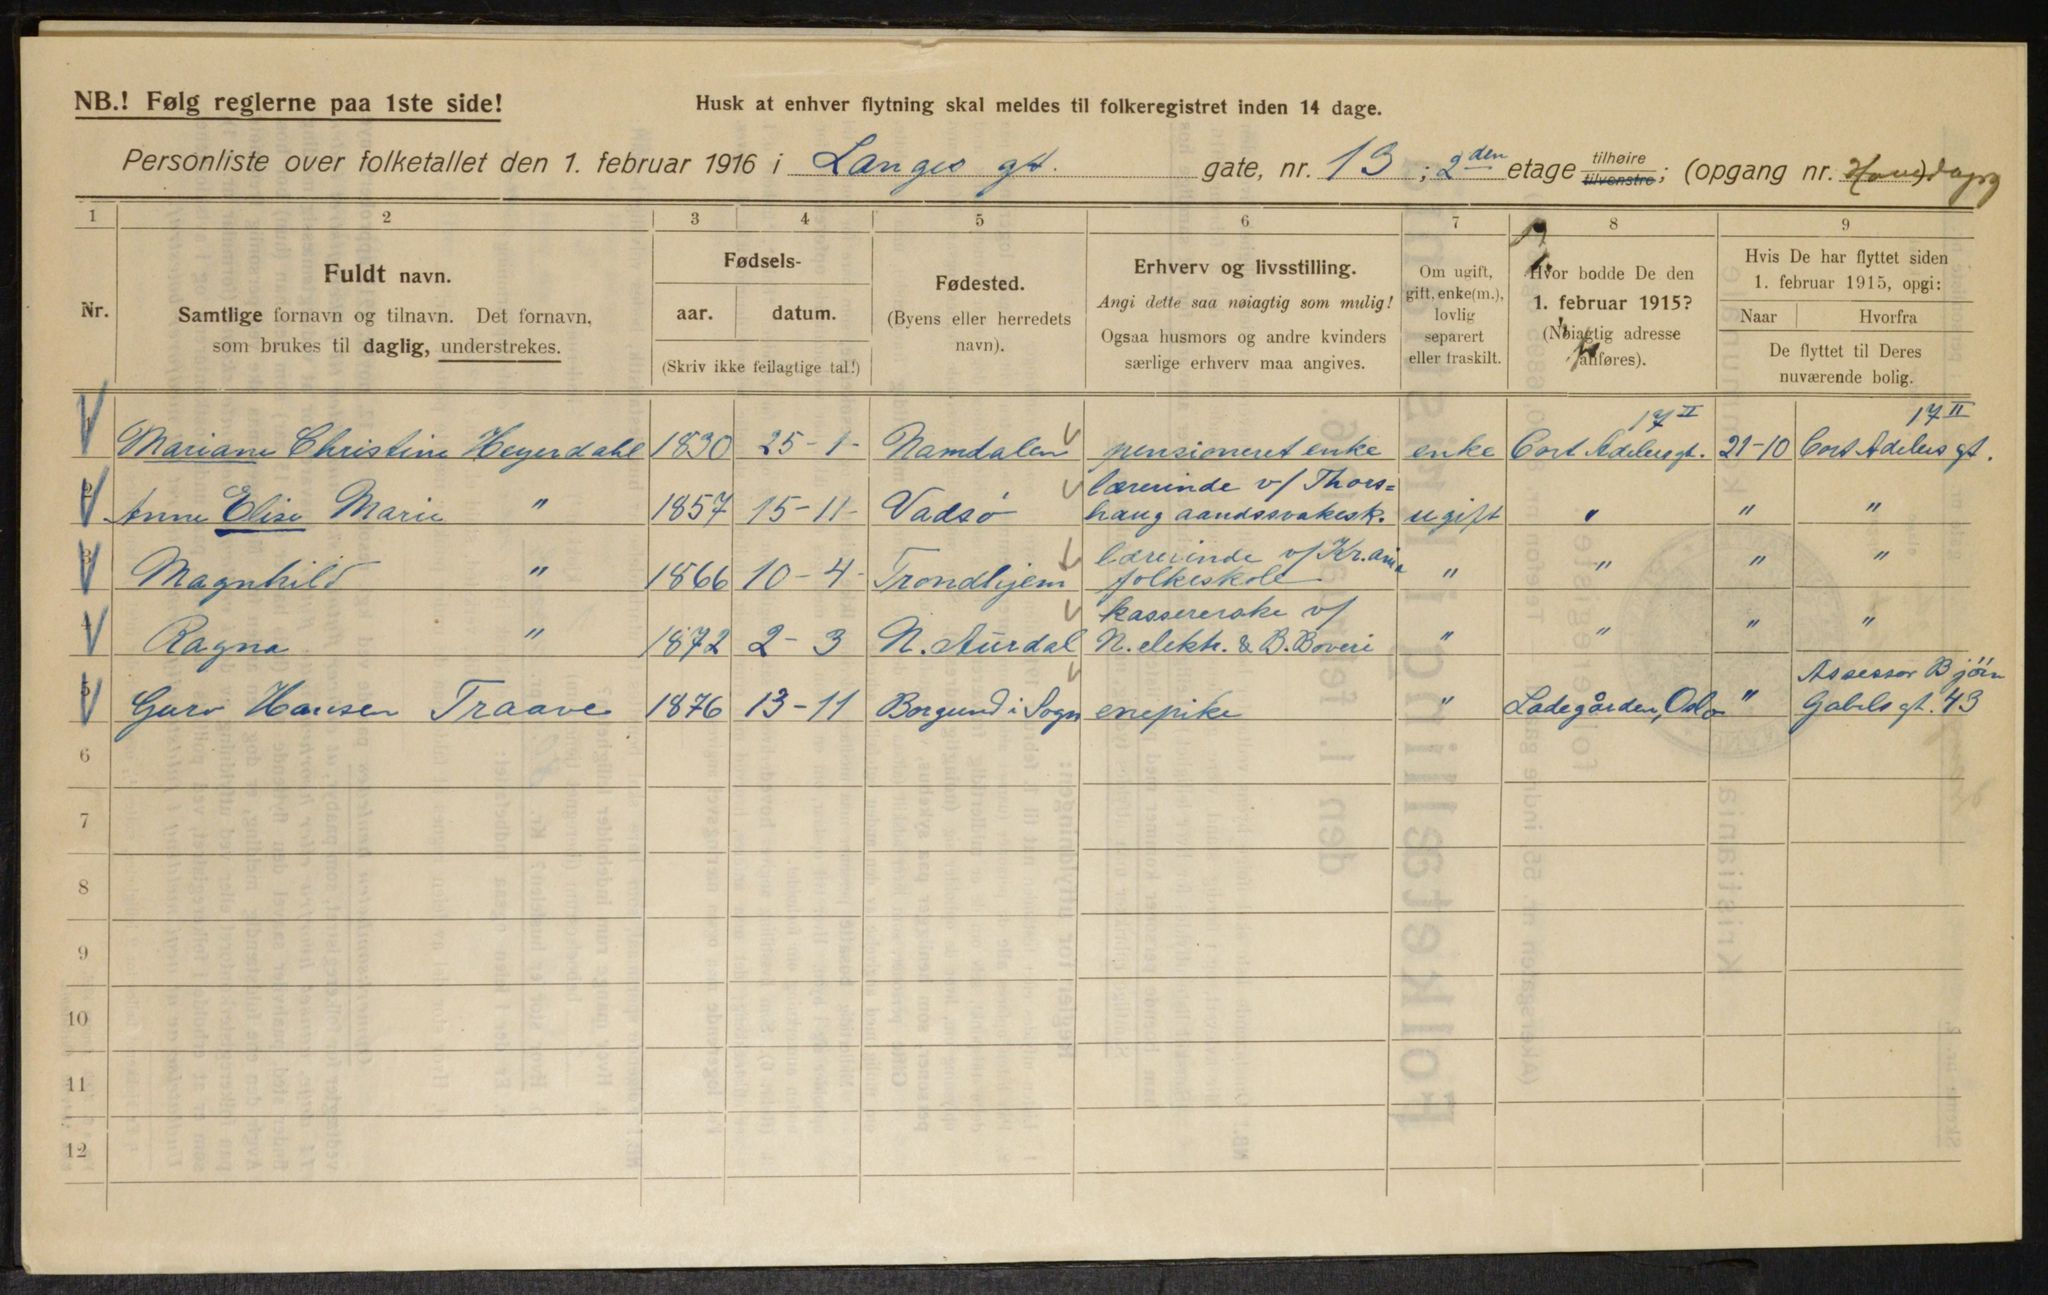 NB.! Følg reglerne paa 1ste side!
Husk at enhver flytning skal meldes til folkeregistret inden 14 dage.
Personliste over folketallet den 1. februar 1916 i Langes gt. gate, nr. 13; 2den etage tilhøire tilvenstre; (opgang nr. Hov)dopg
1 2 3 4 5 6 7 8 9
Nr.
Fuldt navn.
Samtlige fornavn og tilnavn. Det fornavn,
som brukes til daglig, understrekes.
Fødsels-
aar. datum.
(Skriv ikke feilagtige tal!)
Fødested.
(Byens eller herredets
navn).
Erhverv og livsstilling.
Angi dette saa nøiagtig som mulig!
Ogsaa husmors og andre kvinders
særlige erhverv maa angives.
Om ugift,
gift, enke(m.),
lovlig
separert
eller fraskilt.
Hvor bodde De den
1. februar 1915?
(Nøiagtig adresse
anføres).
Hvis De har flyttet siden
1. februar 1915, opgi:
Naar Hvorfra
De flyttet til Deres
nuværende bolig.
Mariane Christine Heyerdahl 1830 25-1- Namdalen pensioneret enke enke Cort Adelersgt. 17 II 21-10 Cort Adelers gt. 17 II
2 Anne Elise Marie " 1857 15-11- Vadsø lærerinde v/ Thors=
haug aandssvakesk. ugift " " "
3 Magnhild " 1866 10-4- Trondhjem lærerinde v/ Kr.ania
folkeskole " " " "
4 Ragna " 1872 2-3 N. Aurdal kassererske v/
N. elektr. & B. Boveri " " " "
5 Guro Hansen Traave 1876 13-11 Borgund i Sogn enepike " Ladegården, Oslo " Assessor Bjørn
Gabels gt. 43
6
7
8
9
10
11
12